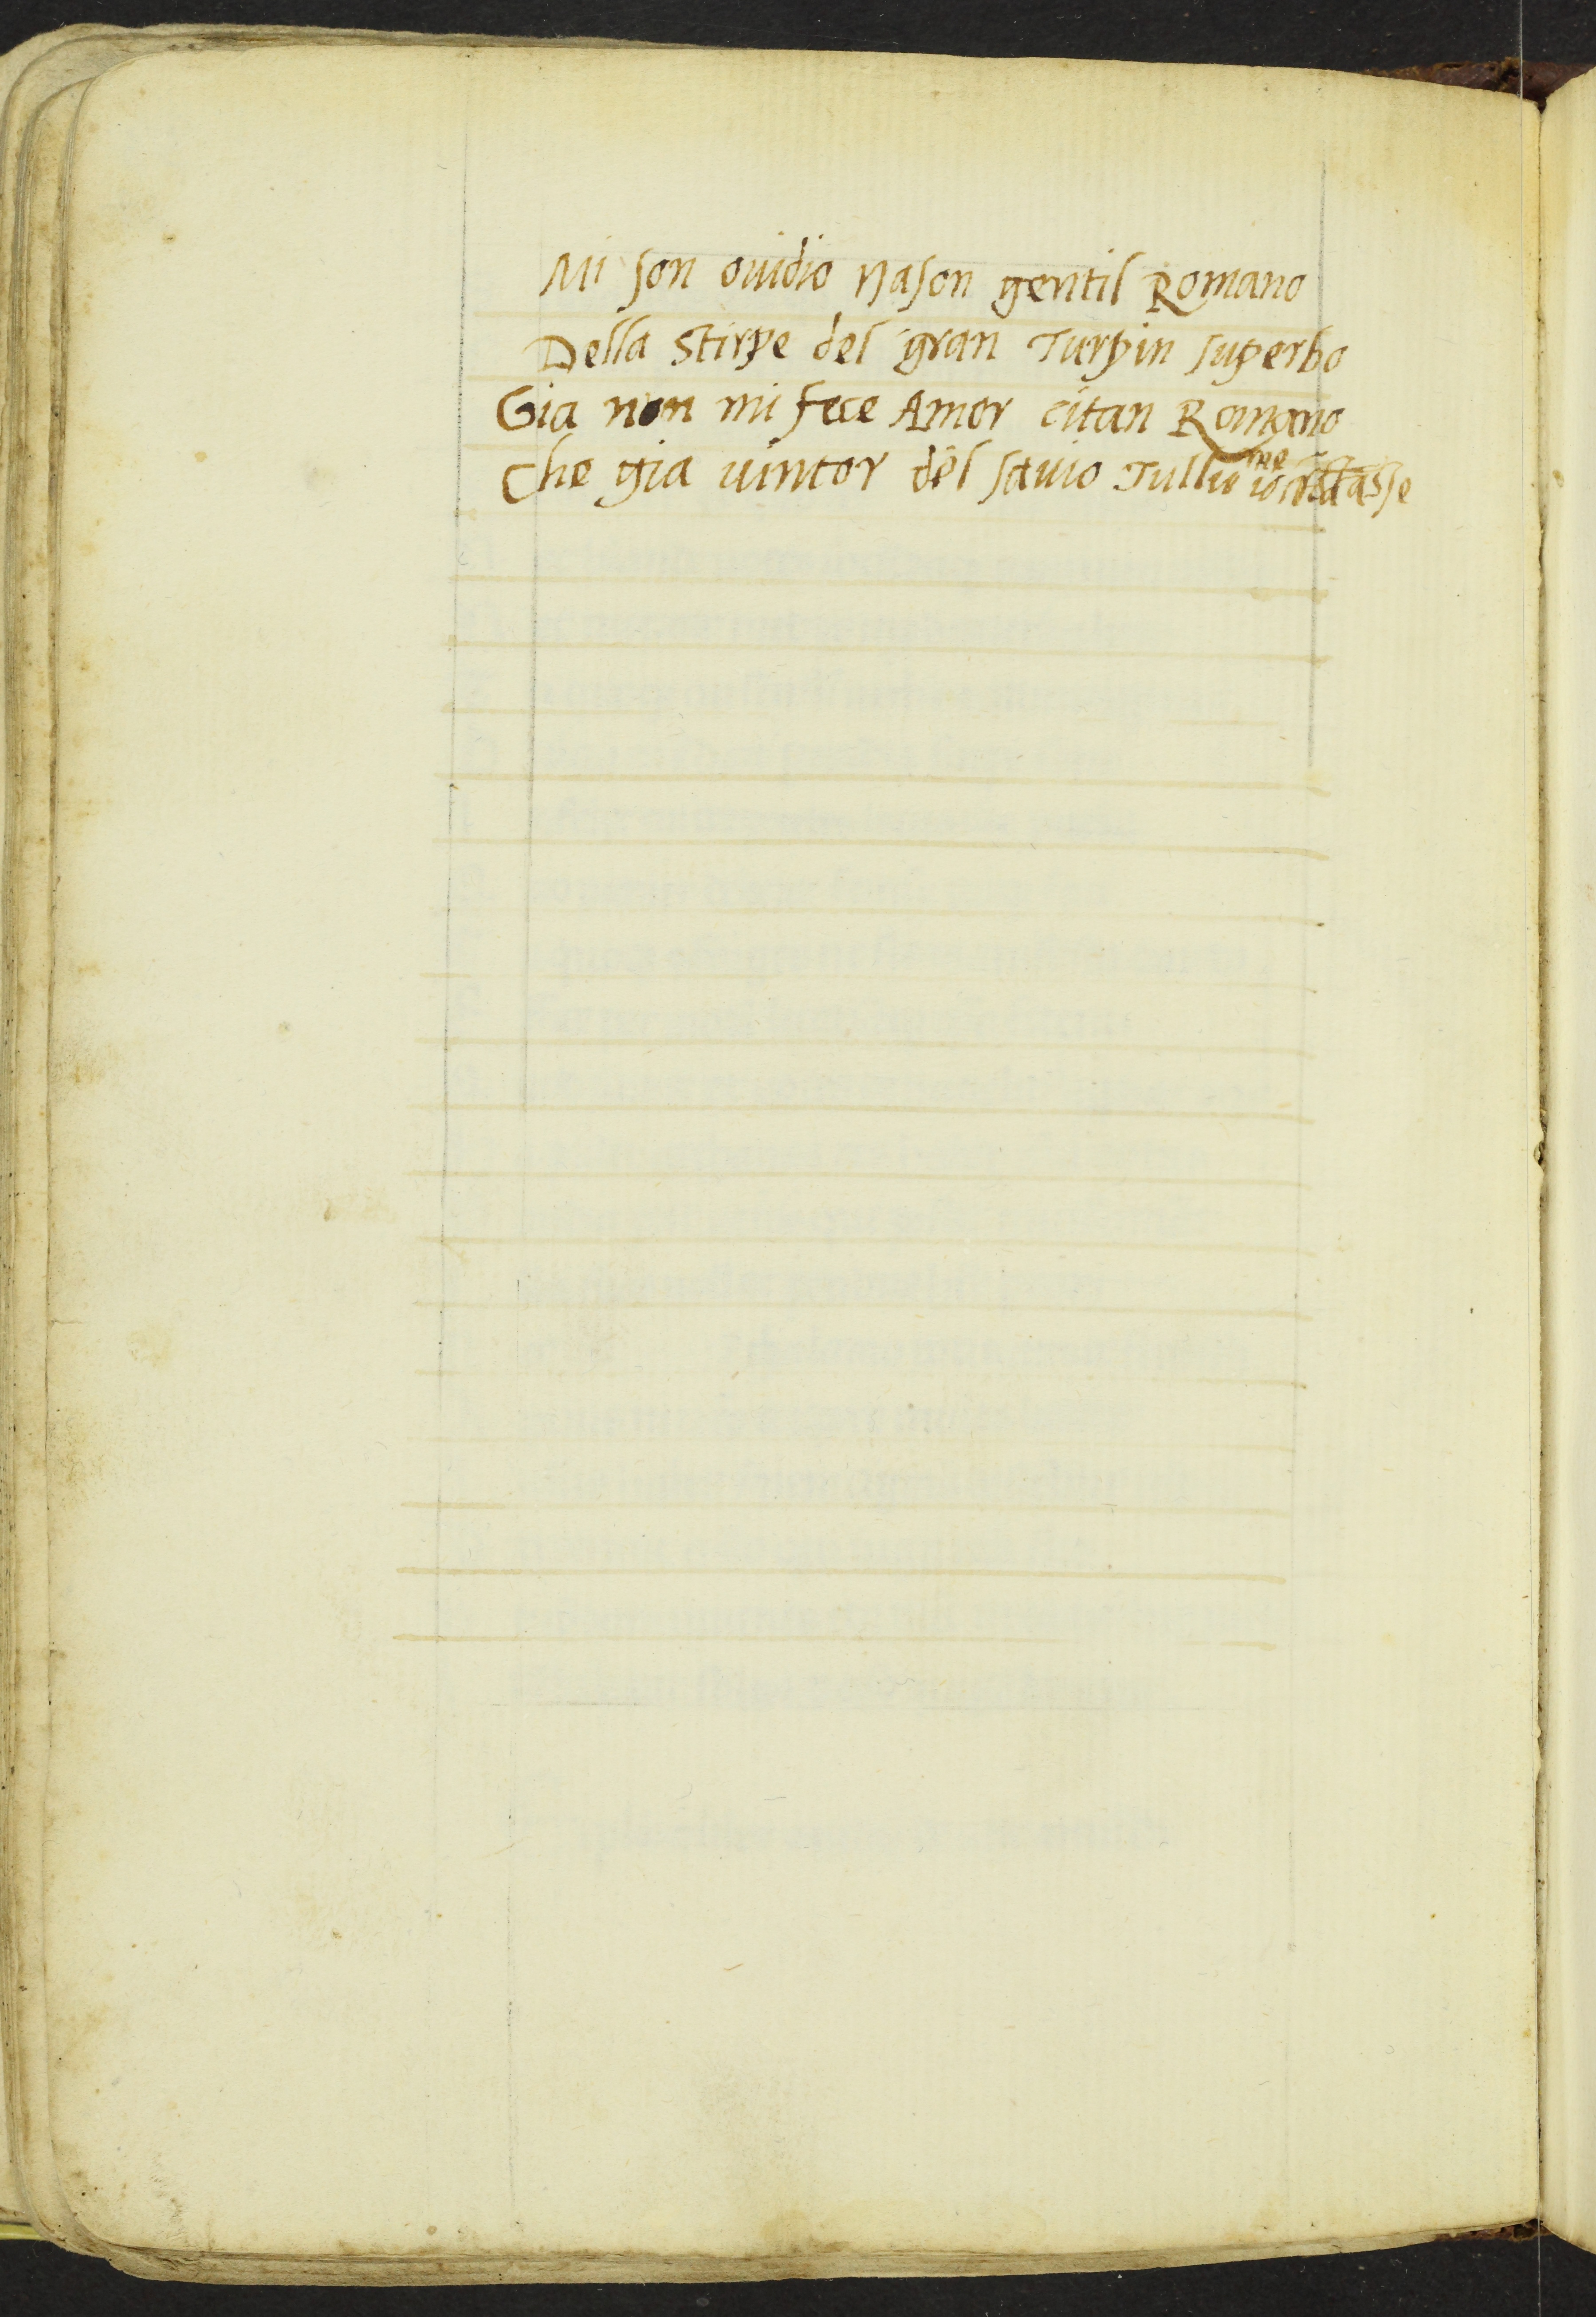 Mi son ouidio nason gentil Romano
Della Stirpe del gran Turpin superbo
Gia non mi fece Amor citan Romano
Che gia uintor del sauio Tullio